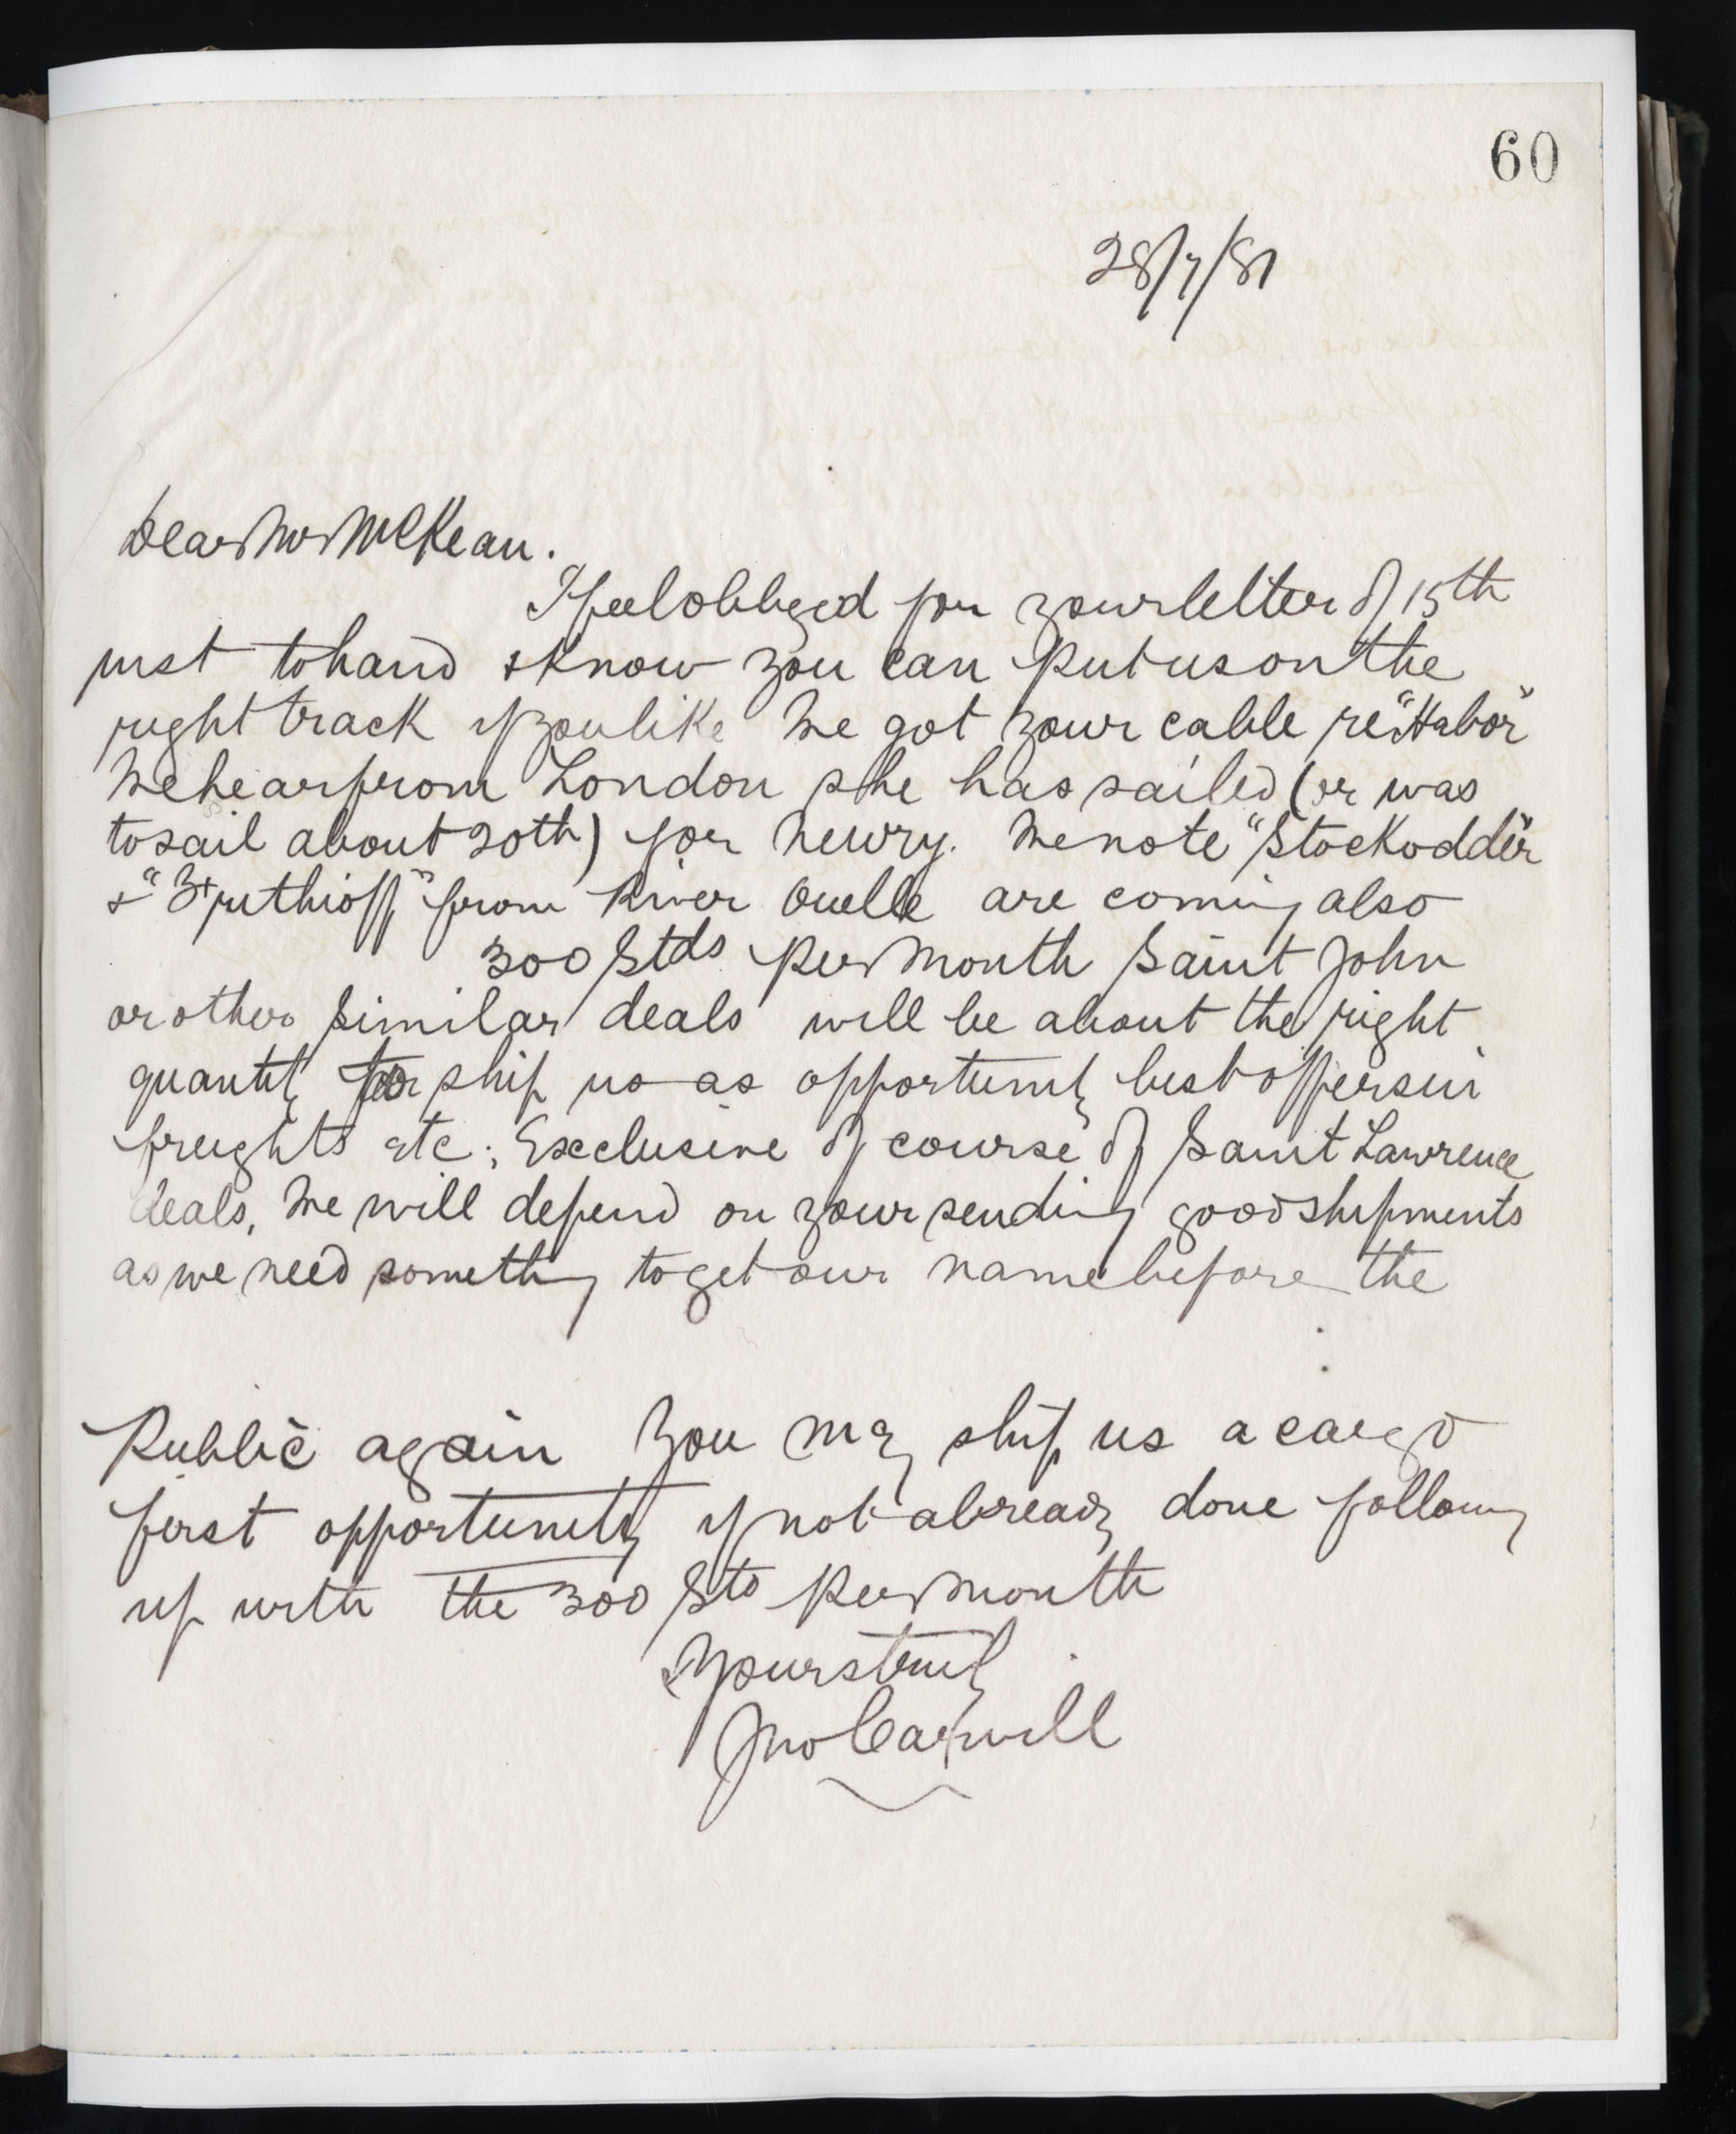 60
28/7/81
Dear Mr McKean.
I feel obliged for your letter of 15th
inst to hand & know you can put us on the
right track if you like We got your cable re "Habor"
We hear from London she has sailed (or was
to sail about 20th) for Newry. We note "Stockodder"
& from River Ouelle are coming also
300 Stds per Month Saint John
or other similar deals will be about the right
quantity to ship us as opportunity best offers in
freights etc; Exclusive of course of Saint Lawrence
deals, We will depend on your sending good shipments
as we need something to get our name before the
Public again You may ship us a cargo
first opportunity if not already done following
up with the 300 Stds per month
Yours truly
Jno Carvill